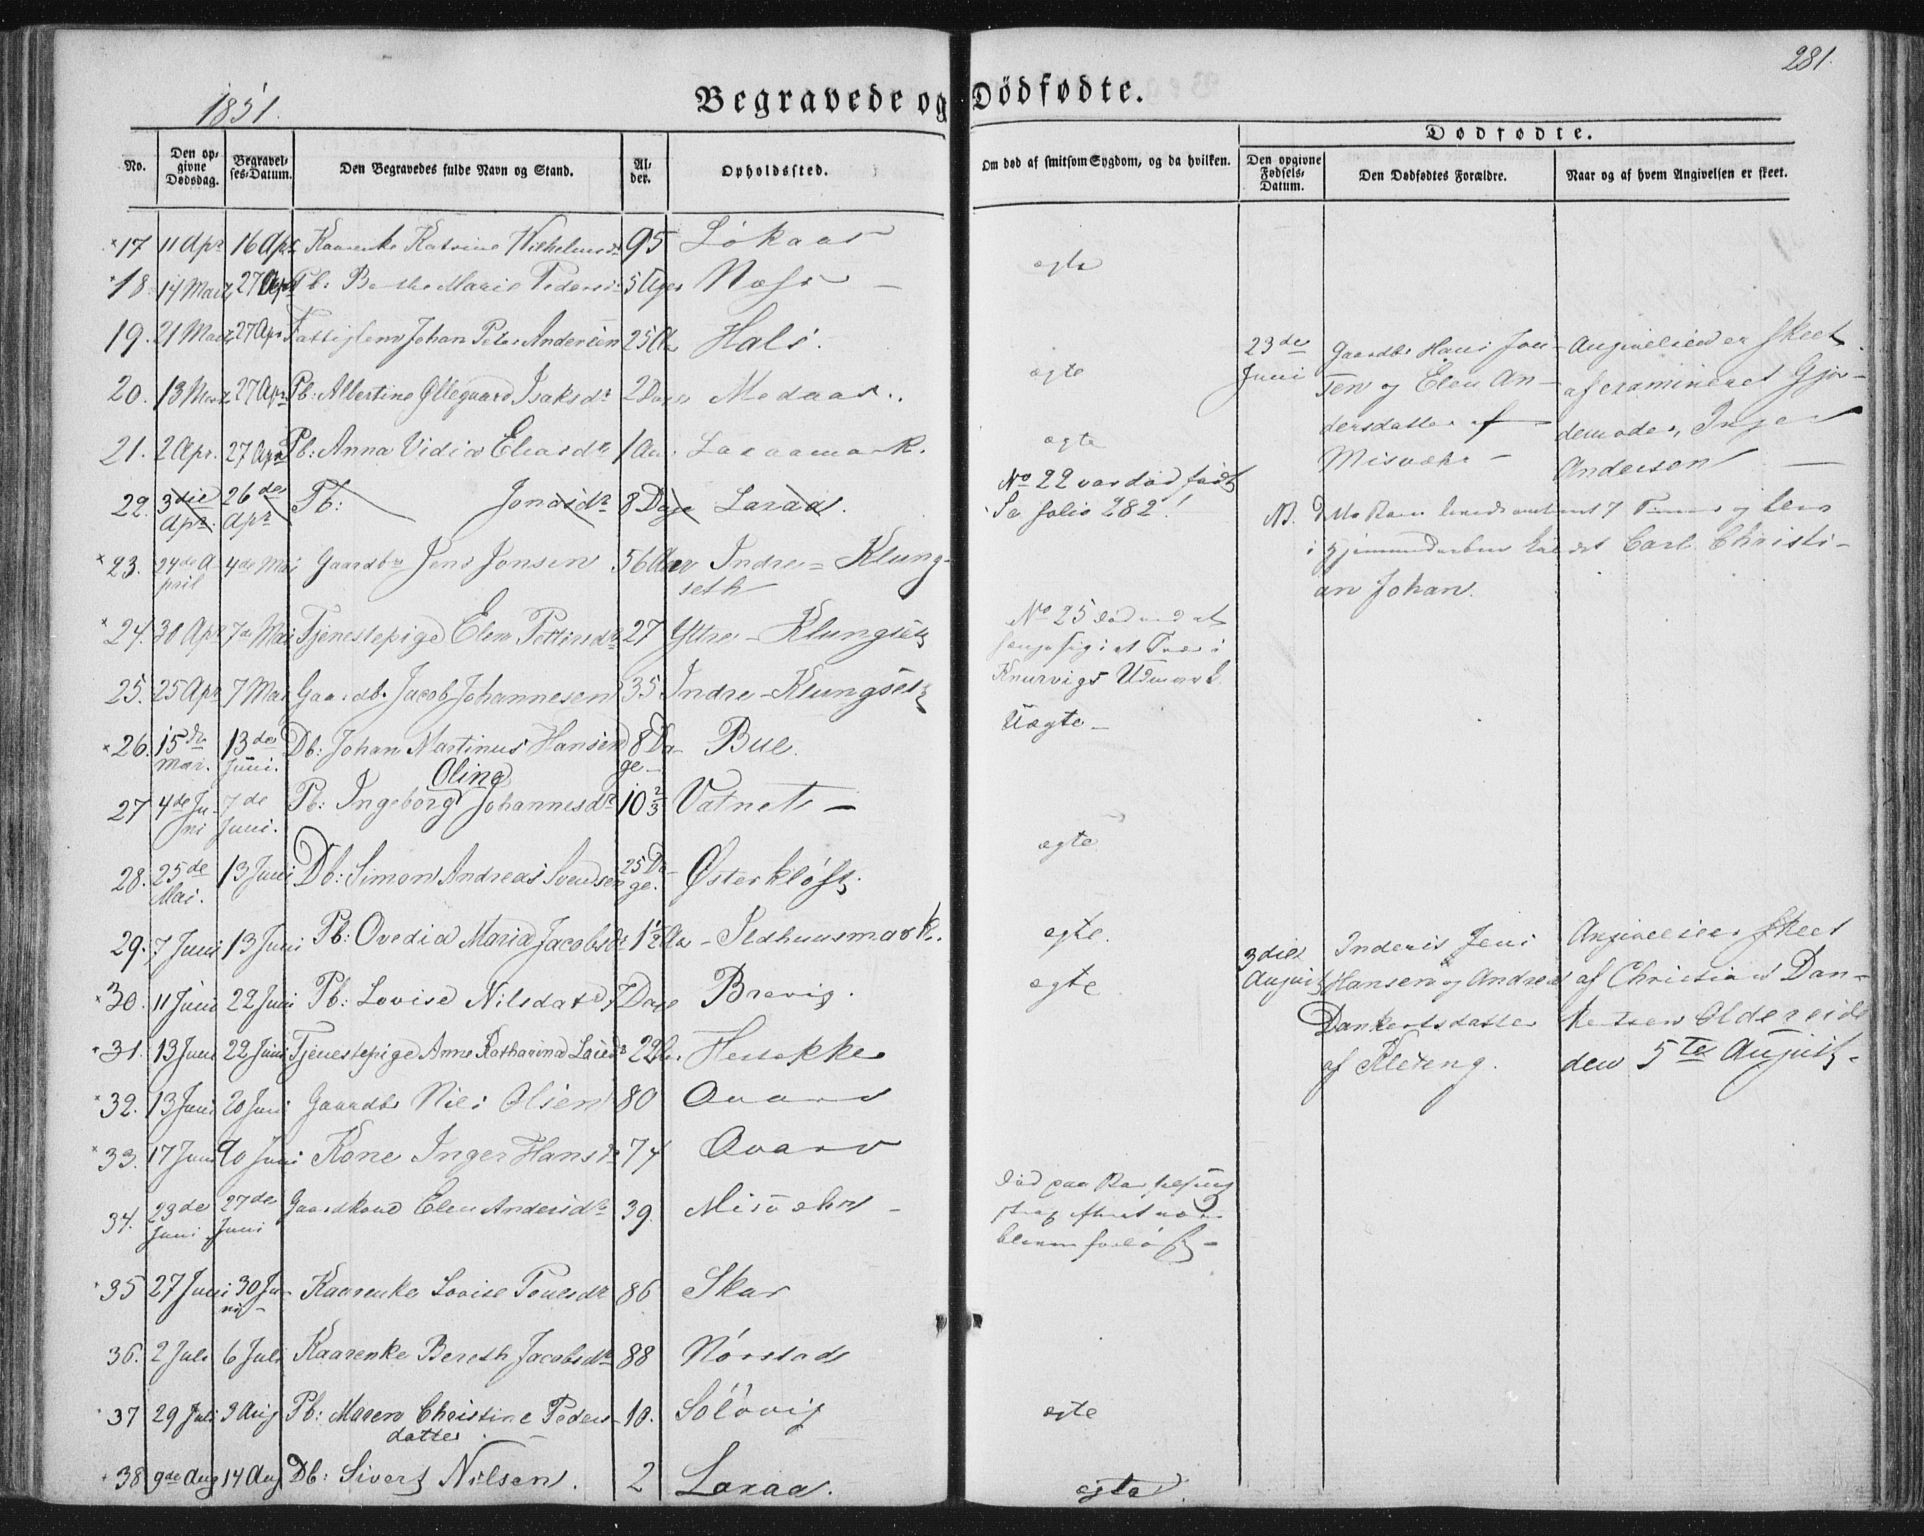 281.
1851.
Begravede og Dödfødte.
Dødfødte.
No.
Den opgivne Dødsdag.
Begravelses-Datum.
Den Begravedes fulde Navn og Stand.
Alder.
Opholdssted.
Om død af smitsom Sygdom, og da hvilken.
Den opgivne Fødsels-Datum.
Den Dødfødtes Forældre.
Naar og af hvem Angivelsen er skeet.
17 11 Apr 16 Apr Kaarenke Katrine Wilhelmsdr 95 Lökaas
18 14 Marz 27 Apr Pb: Berthe Marie Peders 5 Næss – egte
19. 21 Marz 27 Apr Fattiglem Johan Peter Andersen 25 Hals.
20. 13 Marz 27 Apr Pb: Albertine Øllegaard Isaksdr 2 Medaas. egte
21. 2 Apr. 27 Apr Pb: Anna Vidia Eliasdr 1 Aar egte
22. 3die Apr. 26de Apr Pb: Jonasdr 8 Dage Laraas.
No 22 var død født
Se folio 282!
23. 24de April 4de Mai Gaardbr Jens Jonsen 56 Aar Indre = Klungseth
24. 30 Apr 7de Mai Tjenestepige Elen Pettersdr 27 Yttre – Klungset
25. 25 Apr 7 Mai Gaardbr Jacob Johannesen 35 Indre – Klungset
No 25 død ved at
hænge sig i et Træ i
Knurvigs Udmark.
26. 15de Mai. 13de Juni. Db: Johan Martinus Hansen 8 Dage – Bue. Uægte –
27 4de Juni 7de Juni. Pb: Ingeborg Olina Johannesdr 10 2/3 Vatnet –
28. 25de Mai. 13 Juni Db: Simon Andreas Svendsen 25 Dage. Østerkløft. egte
29. 7 Juni 13 Juni Pb: Ovedia Maria Jacobsdr 1½ Aar – Ildhuusmark. egte.
30. 11 Juni 22 Juni Pb: Lovise Nilsdatr 7 Dage Brevig. egte
31. 13 Juni 22 Juni Tjenestepige Anne Katharina 22
32. 13 Juni 20 Juni Gaardbr Nils Olsen 80
33. 17 Juni 20 Juni Kone Inger Hansdr 74
34. 23de Juni 27de Juni Gaardkone Elen Andersdr 39. Misvæhr –
Død paa Barselseng
strax efter at være
bleven forløst –
35 27 Juni 30 Juni – Kaarenke Lovise 86 Skar
36. 2 Juli 6 Juli Kaarenke Bereth Jacobsdr 88 Nørstad
37 29 Juli 3 Aug Pb: Maren Christine Pedersdatter 10. Sölövig egte
38 9de Aug 14 Aug Db: Sivert Nilsen. 2 Laraa. egte.
23de Juni
Gaardbr Hans Jonsen og Elen Andersdatter af Misvæhr –
Angivelsen er skeet
af examineret Gjordemoder, Inger
Anderson –
NB.
Carl Christian Johan.
3die August
Inderst Jens
Hansen og Andrea
Dankertsdatter
af Kleteng.
Angivelsen skeet
af Christian Dankertsen Oldereide
den 5te August.